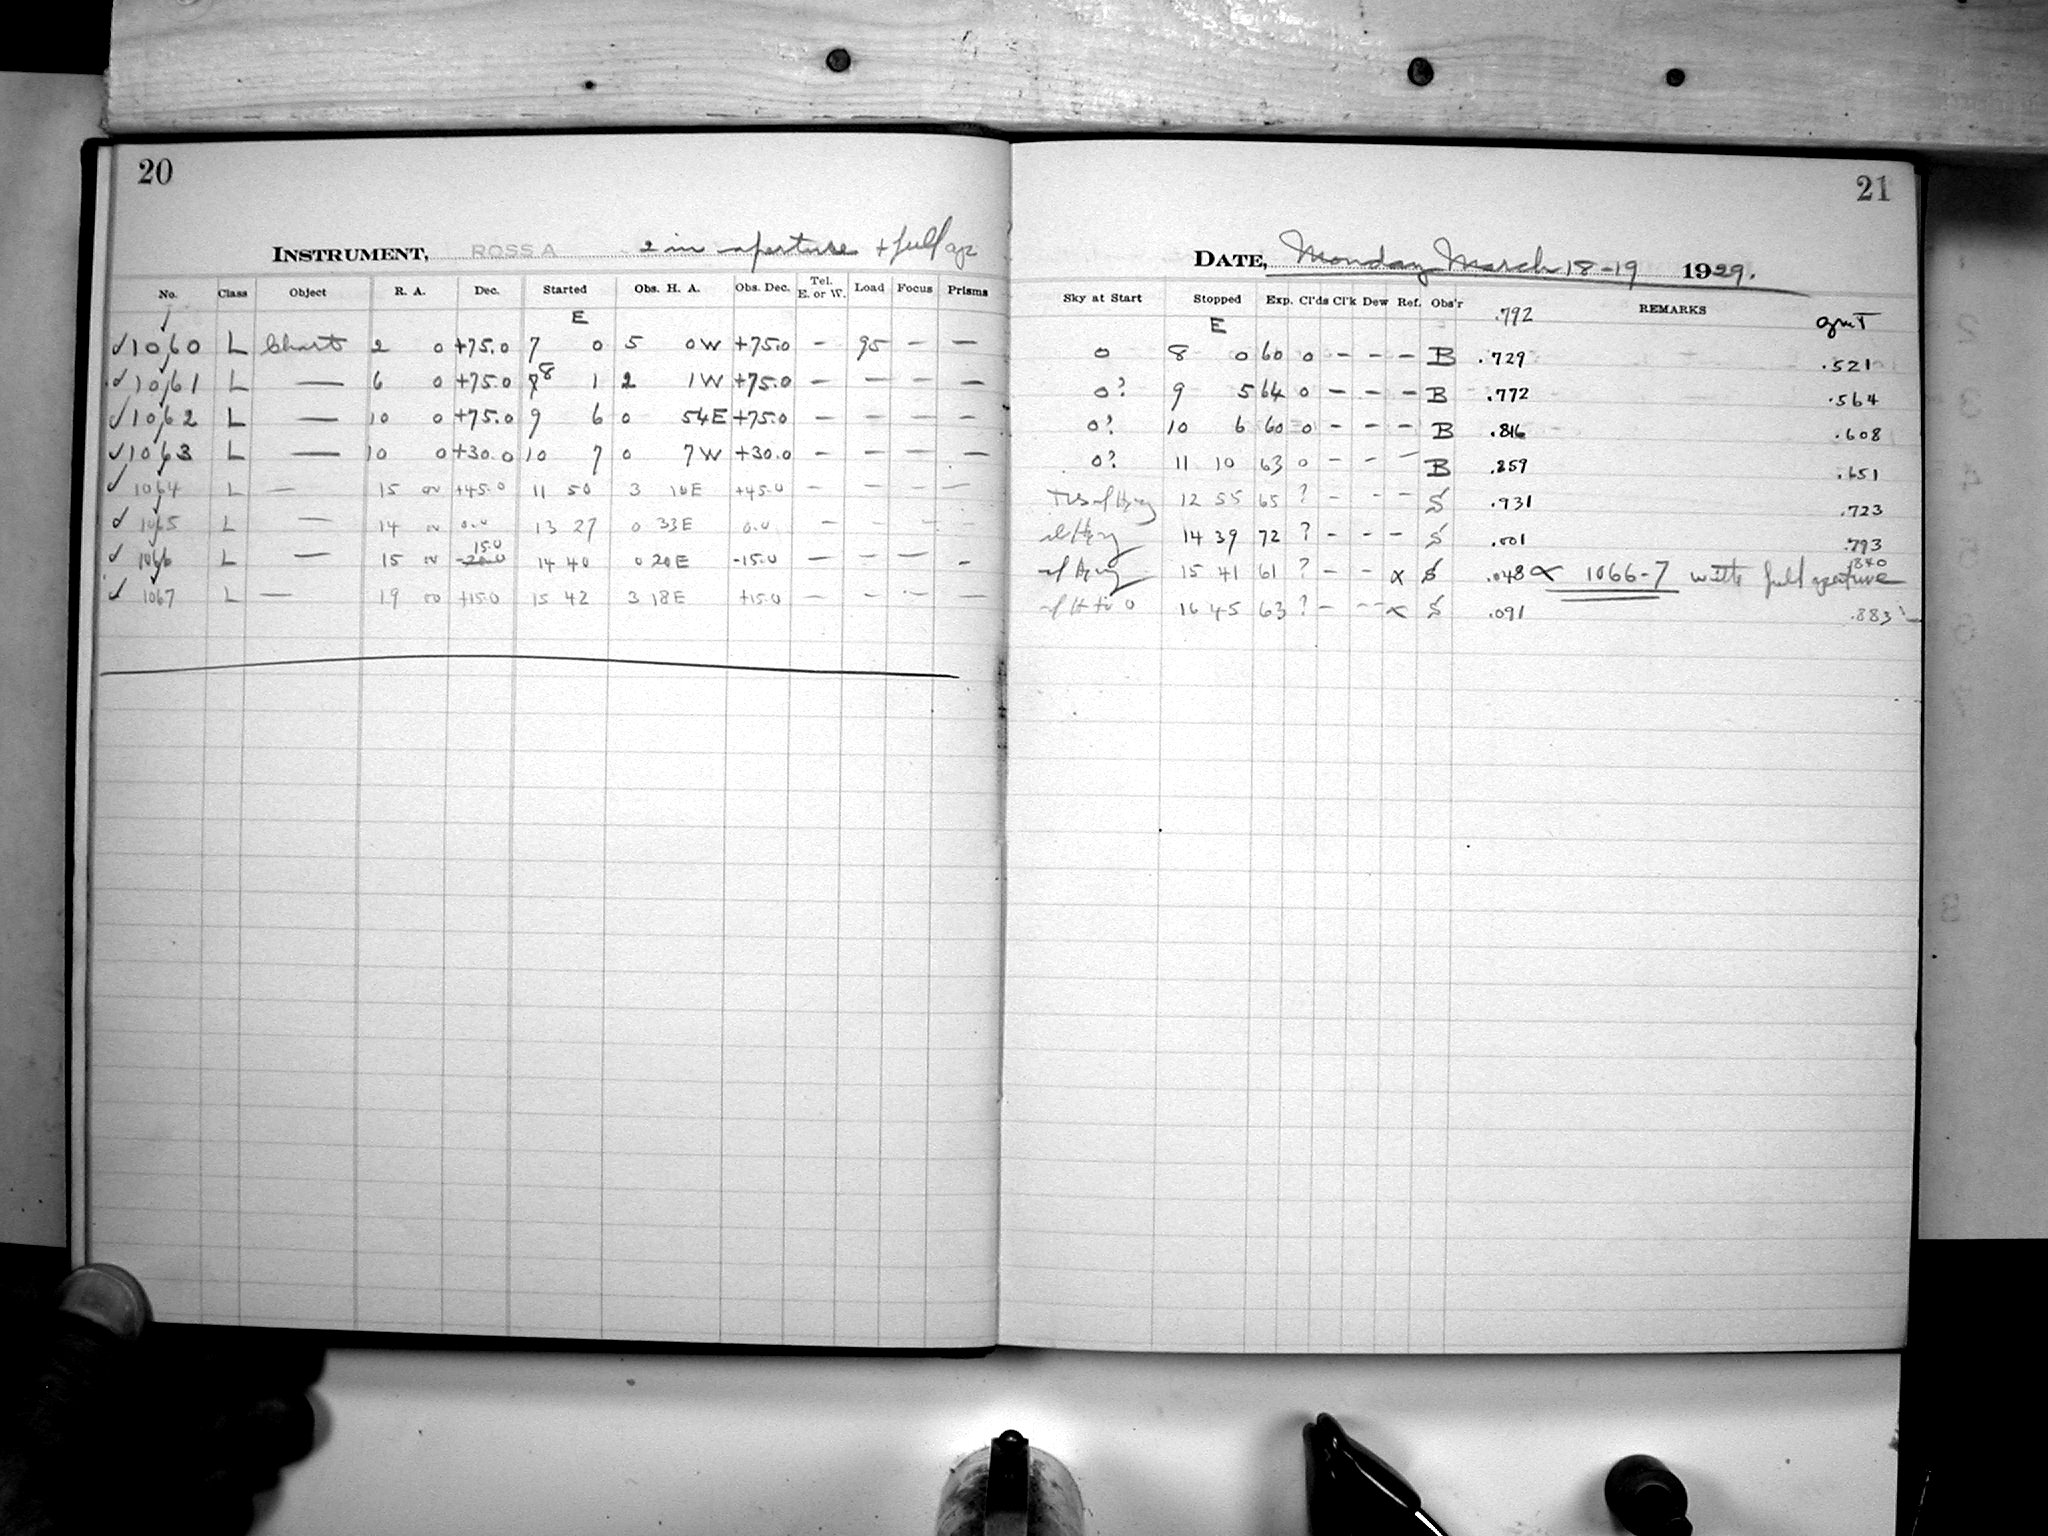 20
INSTRUMENT, ROSS A 2 in aperture + full ap
No. Class Object R. A. Dec. Started Obs. H. A. Obs. Dec. Tel. E. or W. Load Focus Prisms
E
✓1060 L Chart 2 0 +75.0 7 0 5 0W +75.0 – 95 – –
✓1061 L — 6 0 +75.0 8 1 2 1W +75.0 – – – –
✓1062 L — 10 0 +75.0 9 6 0 54E +75.0 – – – –
✓1063 L — 10 0 +30.0 10 7 0 7W +30.0 – – – –
✓1064 L — 15 00 +45.0 11 50 3 10E +45.0 – – – –
✓1065 L — 14 00 0.0 13 27 0 33E 0.0 – – – –
15.0
✓1066 L — 15 00 -20.0 14 40 0 20E -15.0 – – – –
✓1067 L — 19 00 +15.0 15 42 3 18E +15.0 – – – –
21
DATE, Monday March 18-19 1929.
Sky at Start Stopped Exp. Cl'ds Cl'k Dew Ref. Obs'r REMARKS
E .792 GMT
0 8 0 60 0 – – – B .729 .521
0? 9 5 64 0 – – – B .772 .564
0? 10 6 60 0 – – – B .816 .608
0? 11 10 63 0 – – – B .859 .651
12 55 65 ? – – – S .931 .723
14 39 72 ? – – – S .001 .793
15 41 61 ? – – × S .048 × 1066-7 with full aperture .840
16 45 63 ? – – – × S .091 .883